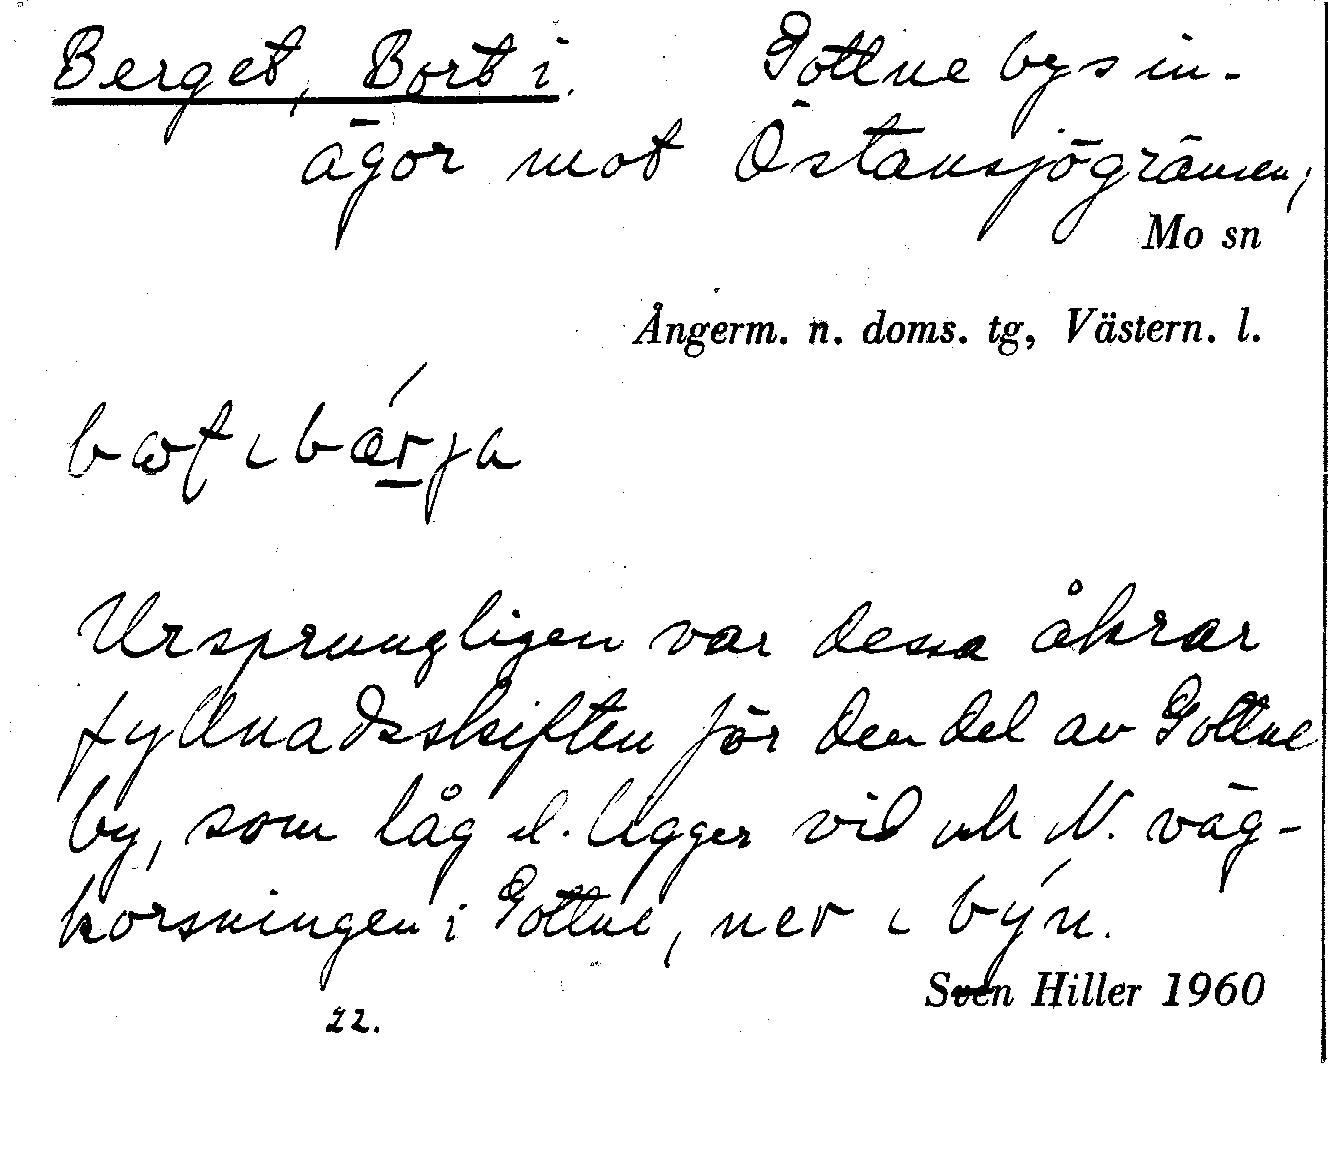 Berget, Bort i. Gottne bys in-
ägor mot Östansjögränsen,
Mo sn
Ångerm. n. doms. tg, Västern. l.
Ursprungligen var dessa åkrar
fyllnadsskiften för den del av Gottne
by, som låg el. ligger vid och N. väg-
korsningen i Gottne, ner ɩ býn.
Sven Hiller 1960
22.